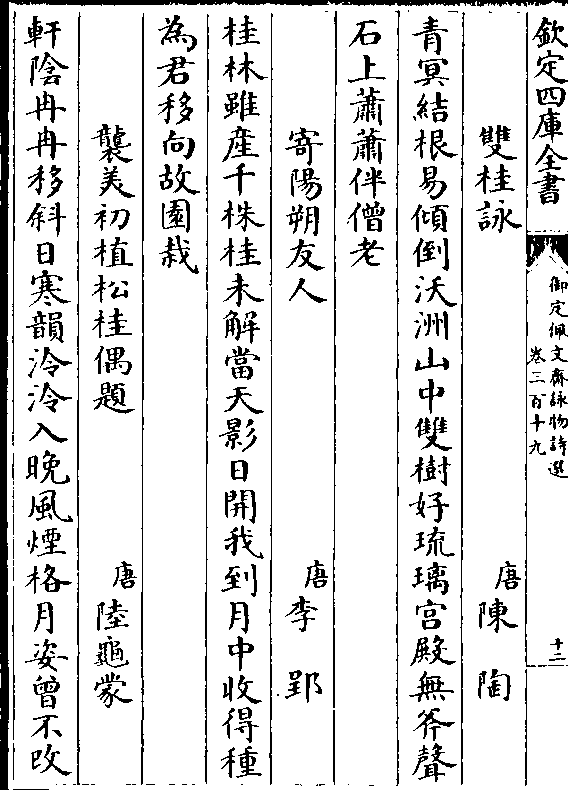 欽定四庫全書
御定佩文齋詠物詩選
卷三百十九
十二
雙桂詠
唐陳陶
青冥結根易傾倒沃洲山中雙樹好琉璃宮殿無斧聲
石上蕭蕭伴僧老
寄陽朔友人
唐李郢
桂林雖産千株桂未解當天影日開我到月中收得種
為君移向故園栽
襲美初植松桂偶題
唐陸龜蒙
軒陰冉冉移斜日寒韻泠泠入晚風煙格月姿曾不改